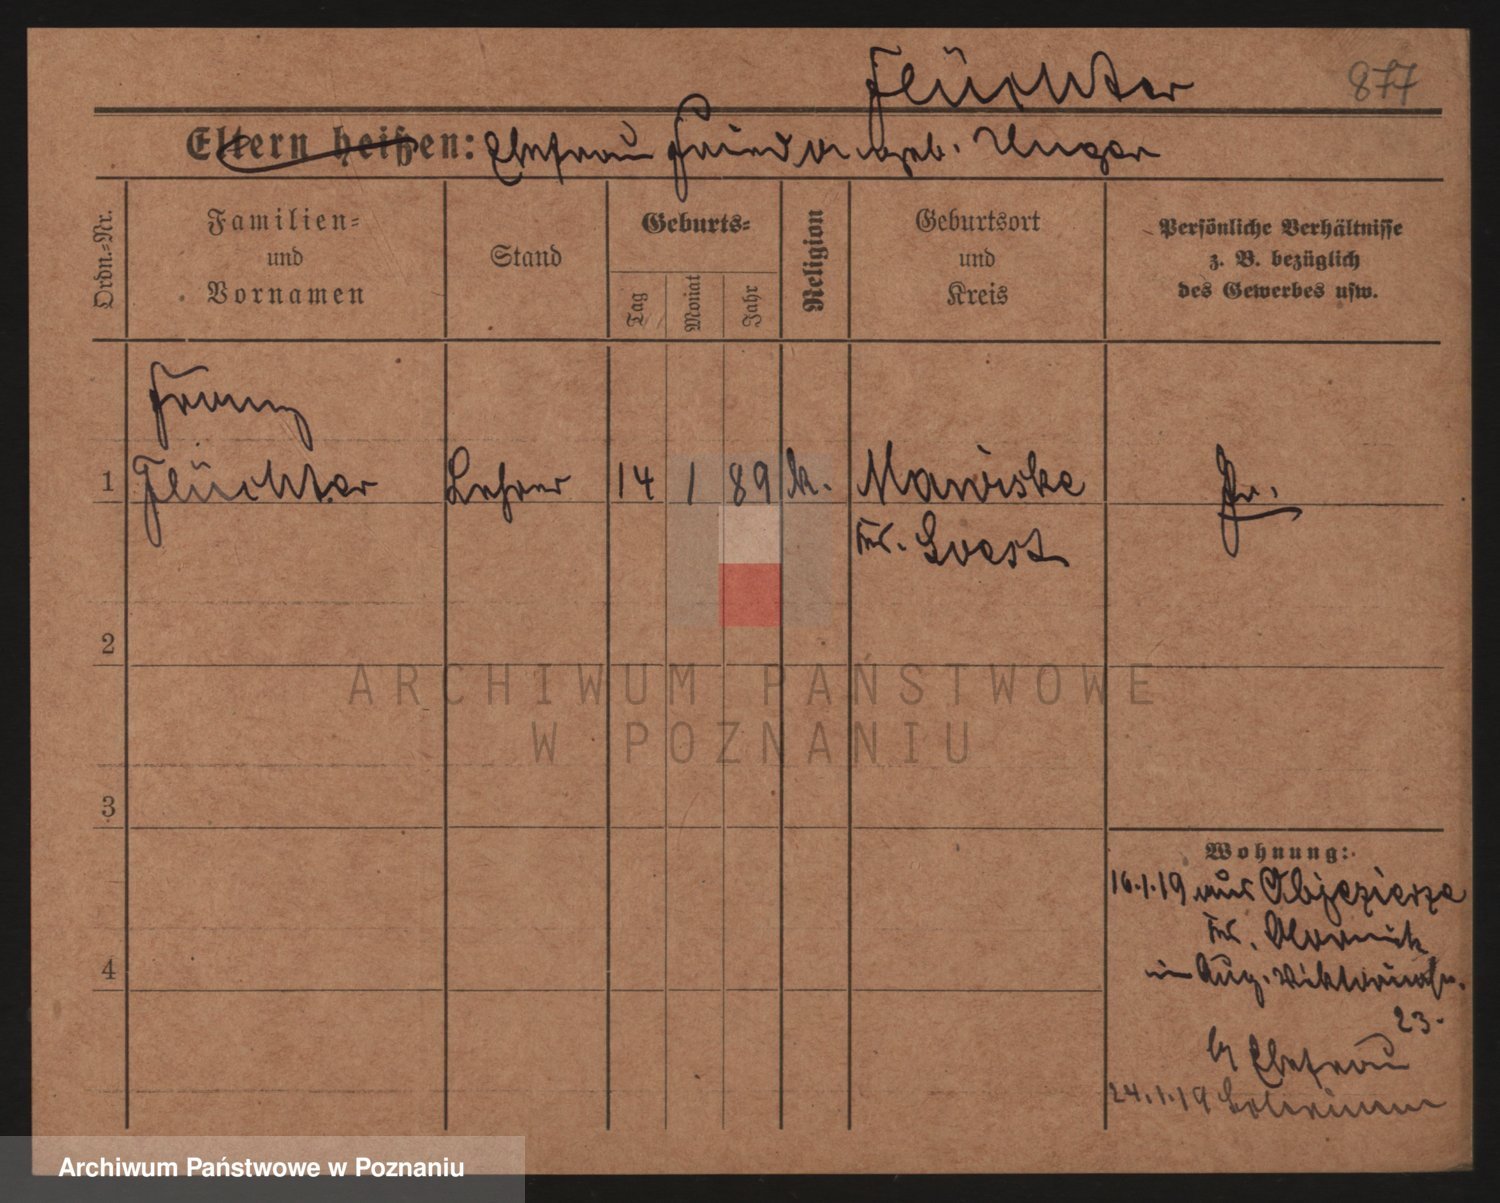 Flüchter
877
Eltern heißen: Ehefrau Frieda geb. Unger
Ordn.-Nr.
Familien-
und
Vornamen
Stand
Geburts-
Tag
Monat
Jahr
Religion
Geburtsort
und
Kreis
Persönliche Verhältnisse
z. B. bezüglich
des Gewerbes usw.
Franz
1 Flüchter Lehrer 14 1 89 k. Mawiske Pr.
Krs. Soest
2
ARCHIWUM PAŃSTWOWE
W POZNANIU
3
4
Wohnung:
16.1.19 aus Objezierze
Krs. Obornik
in Aug. Viktoriastr.
23.
by Ehefrau
24.1.19
Archiwum Państwowe w Poznaniu